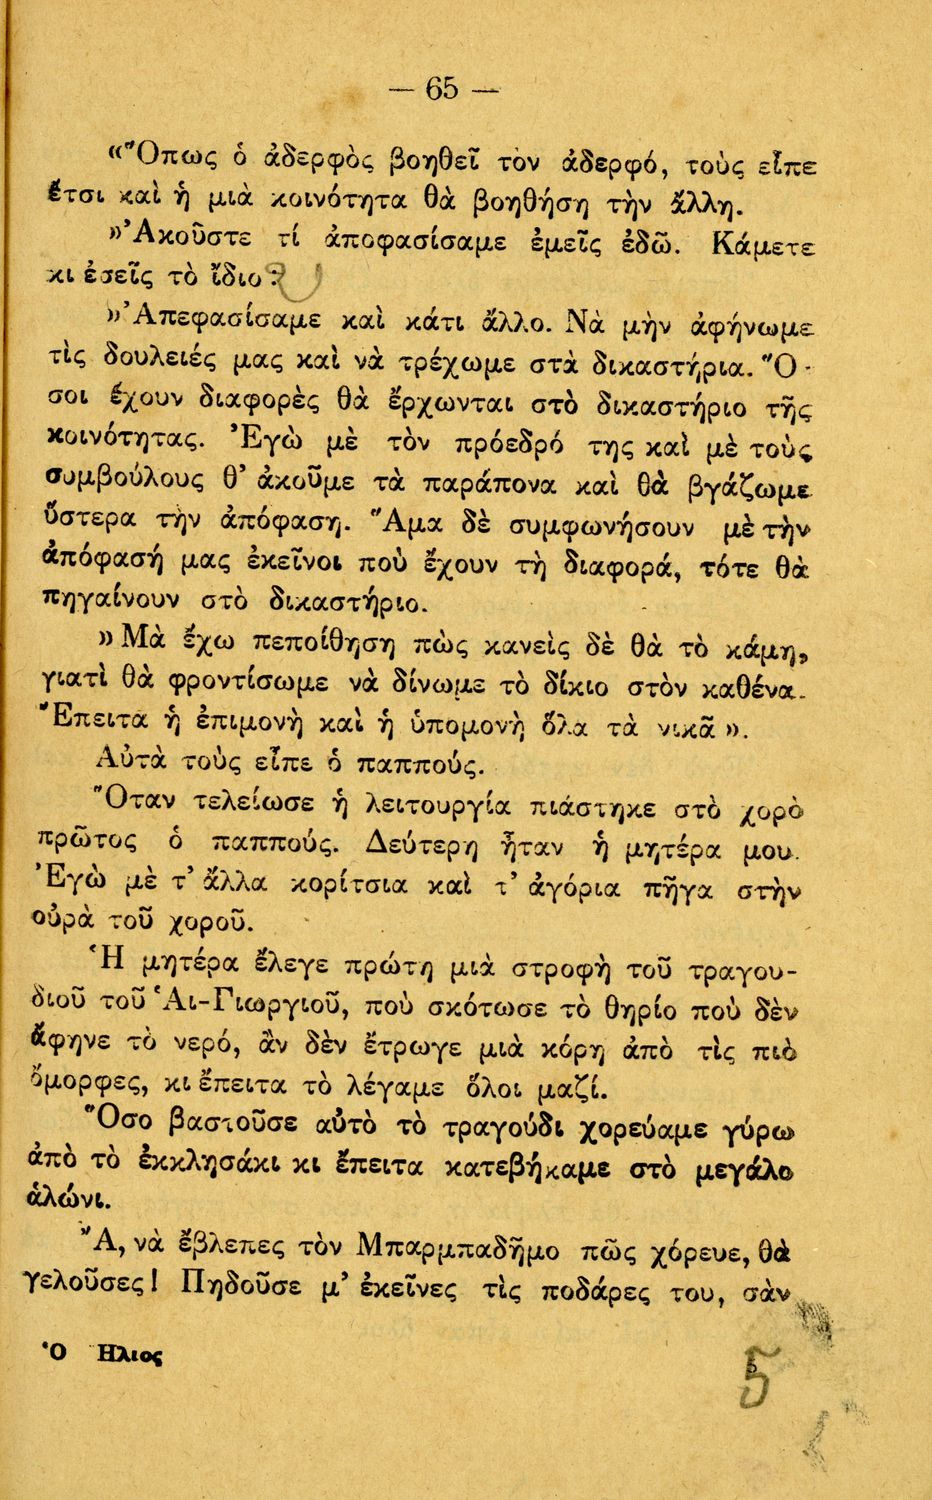 — 65 —
«Ὅπως ὁ ἀδερφὸς βοηθεῖ τὸν ἀδερφό, τοὺς εἶπε
ἔτσι καὶ ἡ μιὰ κοινότητα θὰ βοηθήση τὴν ἄλλη.
»Ἀκοῦστε τί ἀποφασίσαμε ἐμεῖς ἐδῶ. Κάμετε
κι ἐσεῖς τὸ ἴδιο ;
»Ἀπεφασίσαμε καὶ κάτι ἄλλο. Νὰ μὴν ἀφήνωμε
τὶς δουλειές μας καὶ νὰ τρέχωμε στὰ δικαστήρια. Ὅ-
σοι ἔχουν διαφορὲς θὰ ἔρχωνται στὸ δικαστήριο τῆς
κοινότητας. Ἐγὼ μὲ τὸν πρόεδρό της καὶ μὲ τοὺς
συμβούλους θ' ἀκοῦμε τὰ παράπονα καὶ θὰ βγάζωμε
ὕστερα τὴν ἀπόφαση. Ἅμα δὲ συμφωνήσουν μὲ τὴν
ἀπόφασή μας ἐκεῖνοι ποὺ ἔχουν τὴ διαφορά, τότε θὰ
πηγαίνουν στὸ δικαστήριο.
»Μὰ ἔχω πεποίθηση πὼς κανεὶς δὲ θὰ τὸ κάμη,
γιατὶ θὰ φροντίσωμε νὰ δίνωμε τὸ δίκιο στὸν καθένα.
Ἔπειτα ἡ ἐπιμονὴ καὶ ἡ ὑπομονὴ ὅλα τὰ νικᾶ».
Αὐτὰ τοὺς εἶπε ὁ παππούς.
Ὅταν τελείωσε ἡ λειτουργία πιάστηκε στὸ χορὸ
πρῶτος ὁ παππούς. Δεύτερη ἦταν ἡ μητέρα μου.
Ἐγὼ μὲ τ' ἄλλα κορίτσια καὶ τ' ἀγόρια πῆγα στὴν
οὐρὰ τοῦ χοροῦ.
Ἡ μητέρα ἔλεγε πρώτη μιὰ στροφὴ τοῦ τραγου-
διοῦ τοῦ Ἁι-Γιωργιοῦ, ποὺ σκότωσε τὸ θηρίο ποὺ δὲν
ἄφηνε τὸ νερό, ἂν δὲν ἔτρωγε μιὰ κόρη ἀπὸ τὶς πιὸ
ὄμορφες, κι ἔπειτα τὸ λέγαμε ὅλοι μαζί.
Ὅσο βαστοῦσε αὐτὸ τὸ τραγούδι χορεύαμε γύρω
ἀπὸ τὸ ἐκκλησάκι κι ἔπειτα κατεβήκαμε στὸ μεγάλο
ἁλώνι.
Ἄ, νὰ ἔβλεπες τὸν Μπαρμπαδῆμο πῶς χόρευε, θὰ
γελοῦσες! Πηδοῦσε μ' ἐκεῖνες τὶς ποδάρες του, σὰν
Ὁ Ηλιος
5